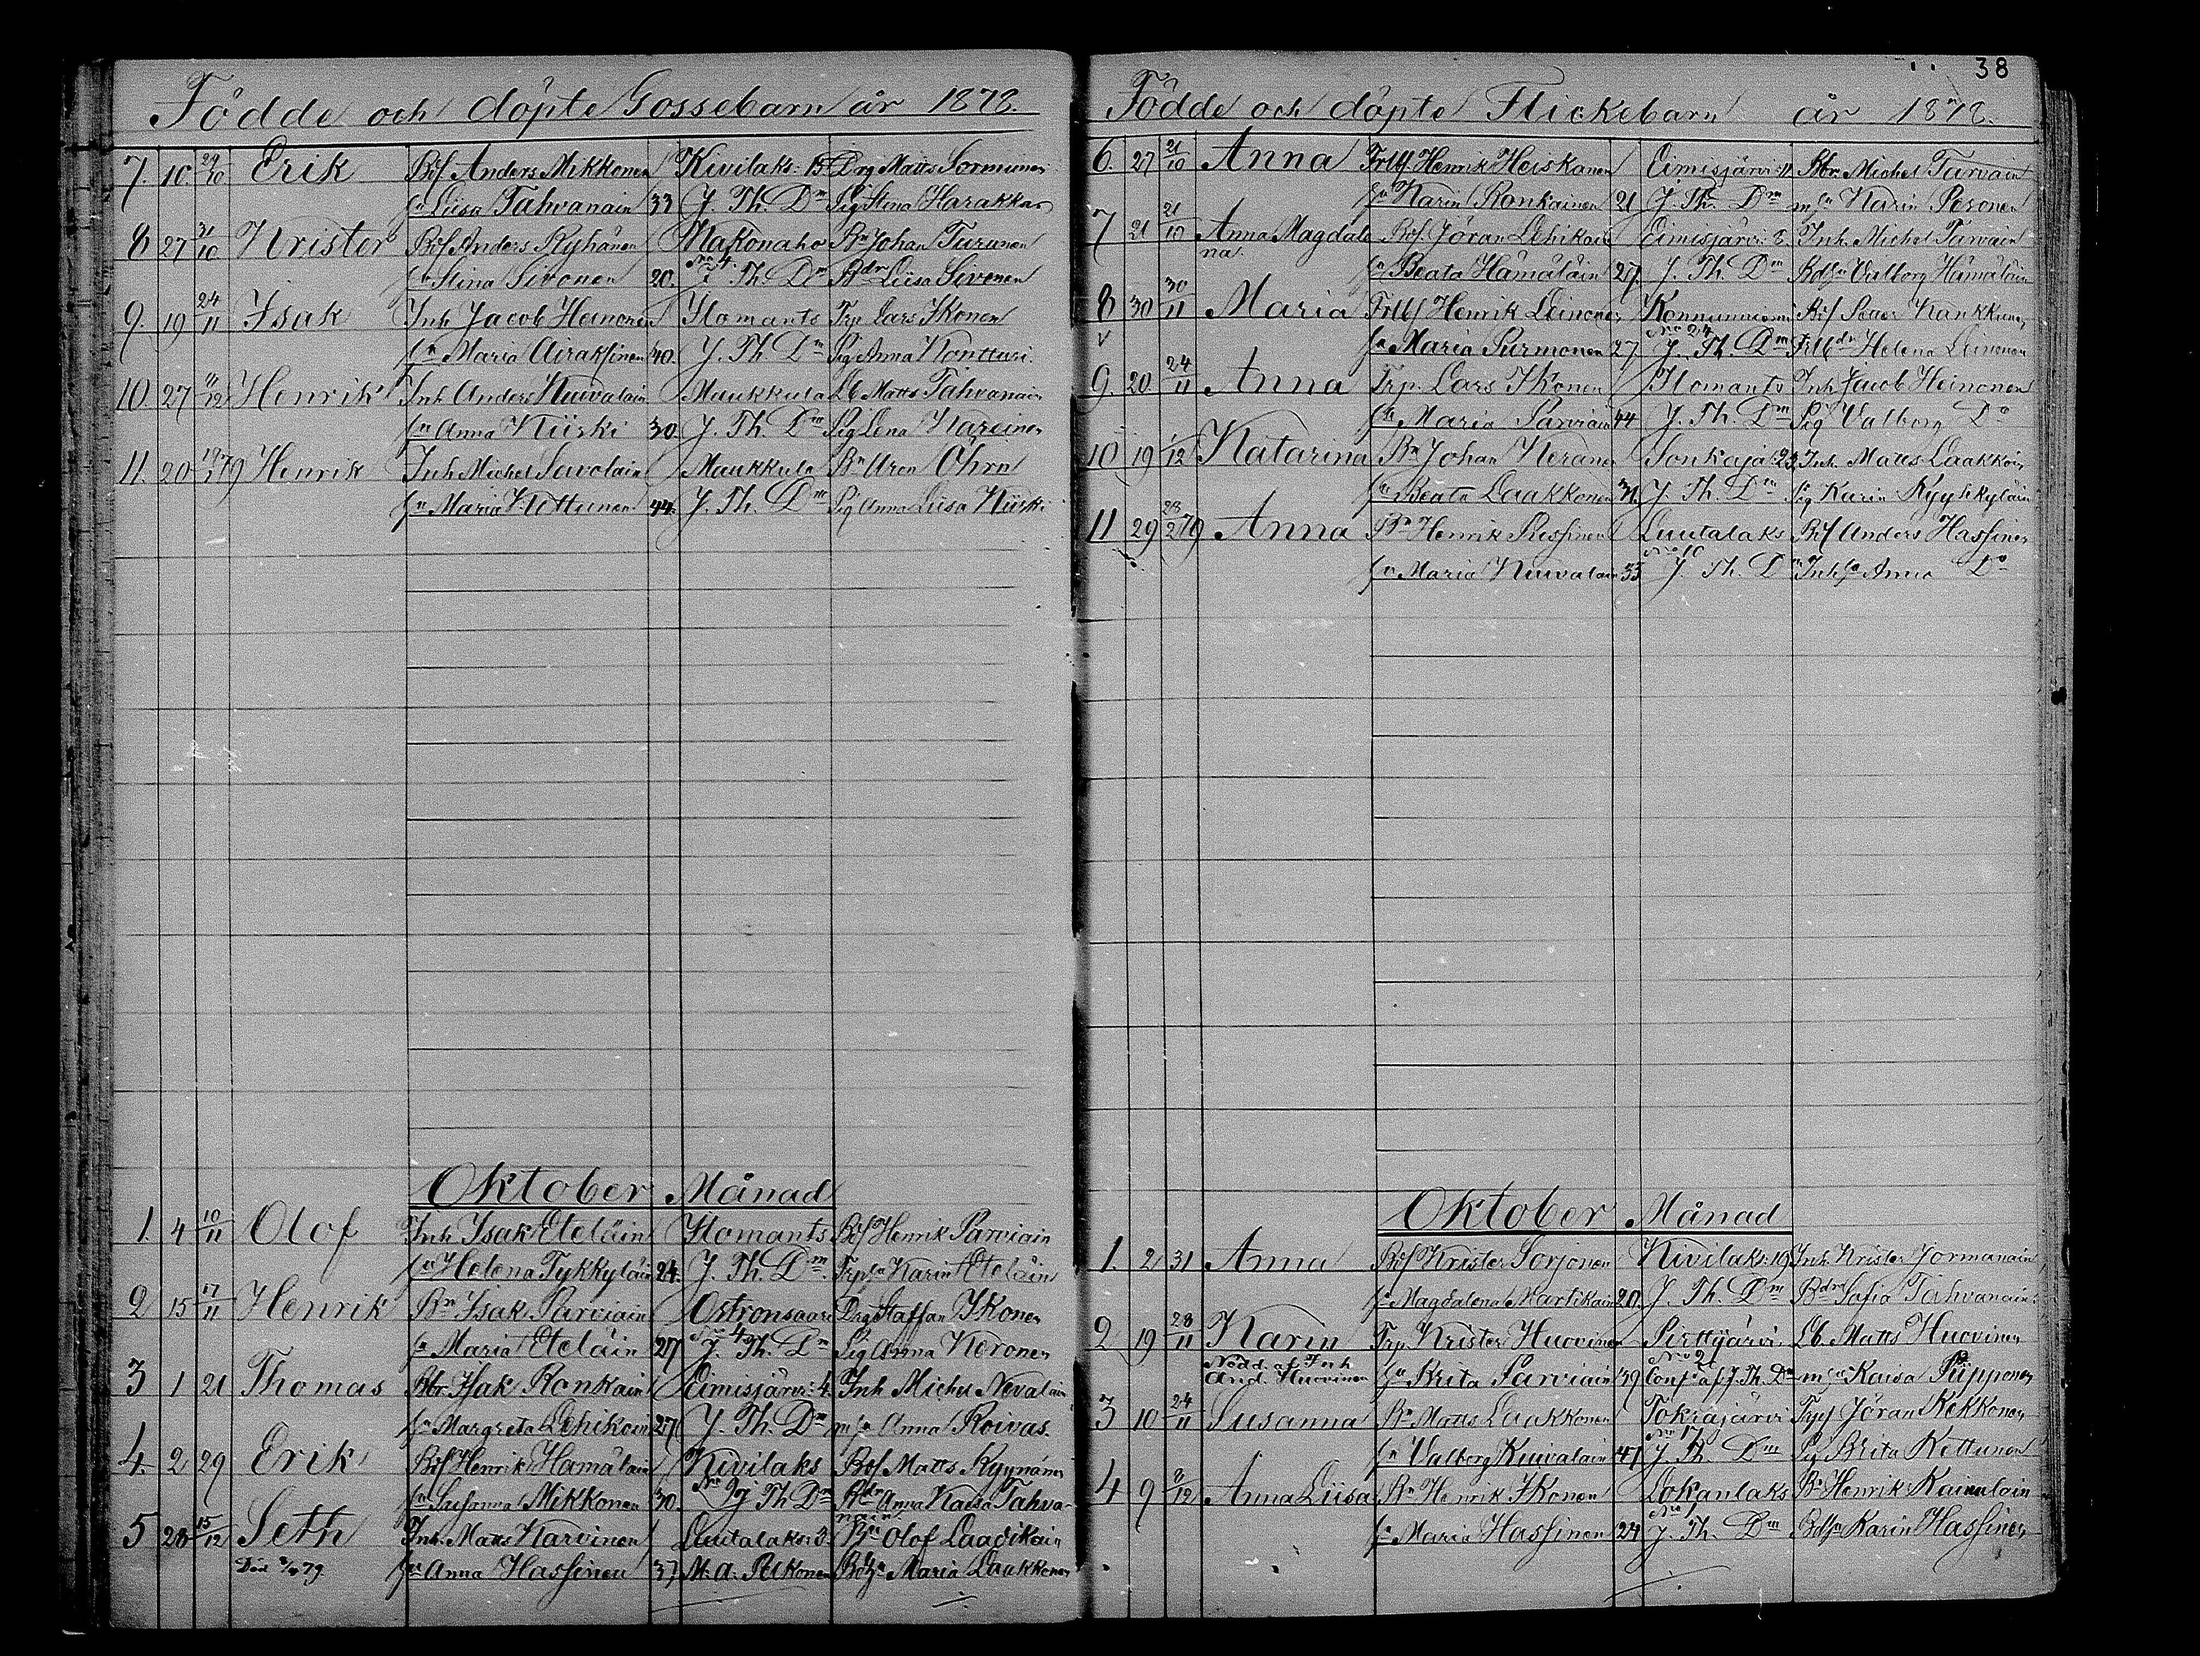 Födde och döpte Gossebarn år 1878.
7. 10. 29/10 Erik Bof Anders Mikkonen Kivilaks: 15 Drg Matts Sormunen
fu Liisa Tahvanain 33 J. Th. Dm Pig Stina Harakka
8 27 31/10 Krister Bof Anders Ryhänen Hakonaho Bn Johan Turunen
No 4.
fu Stina Sivonen 20. J. Th. Dm Bdr Liisa Sivonen
9. 19 24/11 Isak Inh Jacob Heinonen Ilomants Trp Lars Ikonen
fu Maria Airaksinen 40. J. Th Dm Pig Anna Kontturi.
10. 27 /12 Henrik Inh Anders Kuivalain Maukkula Lb Matts Tahvanain
fu Anna Kiiski 30. J. Th. Dm Pig Lena Karvinen
11. 20 79 Henrik Inh Michel Savolain Maukkula Bn Aron Öhrn
fu Maria Kettunen 44. J. Th. Dm Pig Anna Liisa Kiiski
Oktober Månad
1. 4 10/11 Olof Inh Isak Eteläin Ilomants Bof Henrik Parviain
fu Helena Tykkyläin 24. J. Th. Dm. Trpfu Karin Eteläin
2 15 17/11 Henrik Bn Isak Parviain Ostronsaari Drg Staffan Ikonen
No 4
fu Maria Eteläin 27 J. Th. Dm Pig Anna Koronen
3 1 21 Thomas Rbr. Isak Ronkain Eimisjärvi: 4. Inh Michel Nevalain
fu Margreta Lehikoin 27 J. Th. Dm m fu Anna Roivas.
4. 2 29 Erik Bof Henrik Hämäläin Kivilaks Bof Matts Kyynänen
No 9
fu Susanna Mikkonen 30. J Th Dm Bdr Anna Kaisa Tahva-
nain.
5 28 15/12 Seth Inh. Matts Karvinen Luutalaks: 3. Bn Olof Laadikain
Död 79 fu Anna Hassinen 37 M. A. Pelkonen Bdfu Maria Laakkonen

38
Födde och döpte Flickebarn år 1878.
6. 27 21/10 Anna Frllf Henrik Heiskanen Eimisjärvi: 11 Rbr Michel Tarvain
fu Karin Ronkainen 21 J. Th. Dm m fu Karin Pesonen
7 21 21/10 Anna Magdale Bof Jöran Lehikain Eimisjärvi: 8. Inh. Michel Tarvain
na. fu Beata Hämäläin 27. J. Th Dm Bdfu Valborg Hämäläin
8 30 30/11 Maria Frllf Henrik Leinonen Konnunniemi Bof Kankkunen
No 24
fu Maria Surmonen 27. J. Th. Dm Frllfdr Helena Leinonen
9. 20 24/11 Anna Trp. Lars Ikonen Ilomants Inh Jacob Heinonen
fu Maria Parviain 44 J. Th. Dm Pig Valborg Do
10 19 /12 Katarina Bn Johan Keranen Sonkaja: 23. Inh. Matts Laakkoin
fu Beata Laakkonen 31. J. Th. Dm Pig Karin Kyykyläin
11 29 28/2 79 Anna Bn Henrik Rissinen Luutalaks Bof Anders Hassinen
No 10
fu Maria Kuivalain 33 J. Th. Dm Inhfu Anna Do
Oktober Månad
1. 2 31 Anna Bof Krister Sorjonen Kivilaks: 19 Inh Krister Jormanain
fu Magdalena Martikain 20. J. Th. Dm Bdr Sofia Tahvanain.
2 19 28/11 Karin Trp. Krister Huovinen Sirttijärvi Lb. Matts Huovinen
No 2
Nödd. af Inh
And. Huovinen fu Brita Parviain 39 Conf. af J. Th. Dm m fu Kaisa Piipponen
3 10 24/11 Susanna Bn Matts Laakkonen Tokrajärvi Tpf Jöran Kokkonen
No 17
fu Valborg Kuivalain 41 J. Th Dm Pig Brita Kettunen
4 9 8/12 Anna Liisa Bn Henrik Ikonen Lokanlaks Bn Henrik Kainulain
fu Maria Hassinen 24 J. Th. Dm Bdfu Karin Hassinen